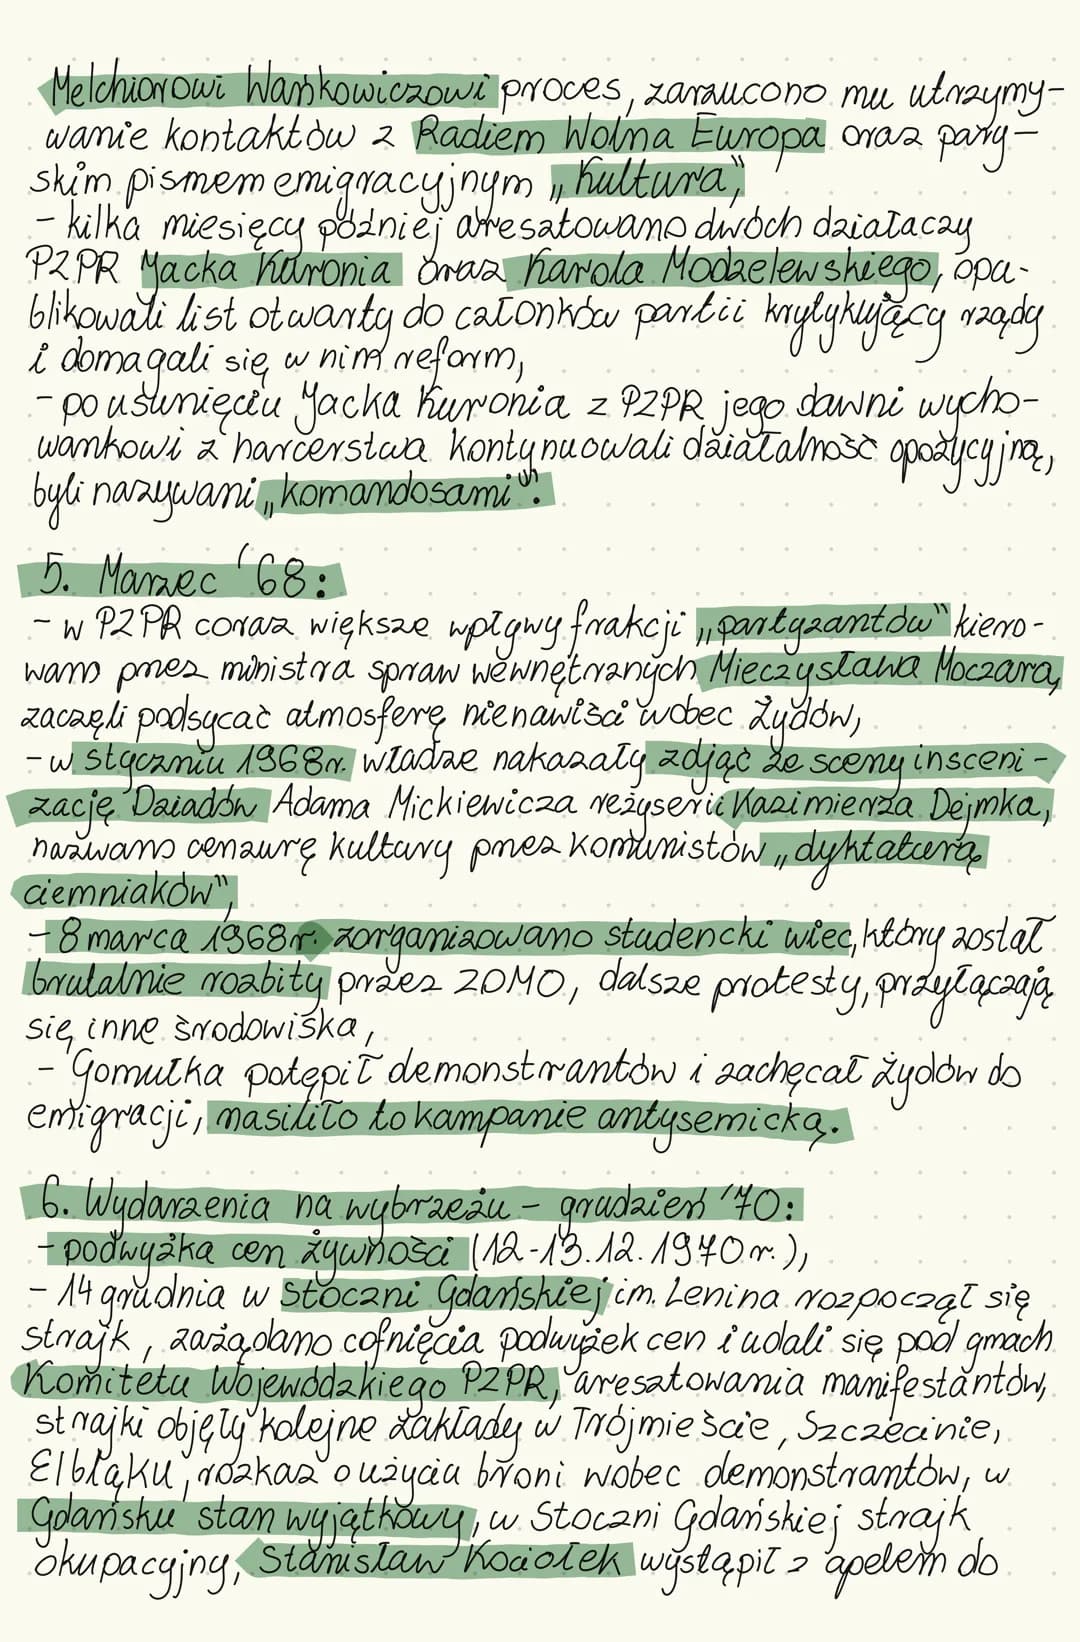 Melchiorowi Wańkowiczowi proces, zarzucono mu utrzymy-
wanie kontaktów z Radiem Wolna Europa oraz pary-
skim pismem emigracyjnym „Kultura",
- kilka miesięcy później aresztowano dwóch działaczy
PZPR Jacka Kuronia oraz Karola Modzelewskiego, opu-
blikowali list otwarty do członków partii krytykujący rządy
i domagali się w nim reform,
- po usunięciu Jacka Kuronia z PZPR jego dawni wycho-
wankowi z harcerstwa kontynuowali działalność opozycyjną,
byli nazywani „komandosami".
5. Marzec '68:
- w PZPR coraz większe wpływy frakcji „partyzantów" kiero-
wano przez ministra spraw wewnętrznych Mieczysława Moczara,
zaczęli podsycać atmosferę nienawiści wobec Żydów,
- w styczniu 1968r. władze nakazały zdjąć ze sceny insceni-
zację Dziadów Adama Mickiewicza reżyserii Kazimierza Dejmka,
nazwano cenzurę kultury przez komunistów „dyktaturą
ciemniaków",
- 8 marca 1968r. zorganizowano studencki wiec, który został
brutalnie rozbity przez ZOMO, dalsze protesty, przyłączają
się inne środowiska,
- Gomułka potępił demonstrantów i zachęcał żydów do
emigracji, nasiliło to kampanie antysemicką.
6. Wydarzenia na wybrzeżu - grudzień '70:
- podwyżka cen żywności (12-13.12.1970r.),
- 14 grudnia w Stoczni Gdańskiej im. Lenina rozpoczął się
strajk, zażądano cofnięcia podwyżek cen i udali się pod gmach
Komitetu Wojewódzkiego PZPR, aresztowania manifestantów,
strajki objęły kolejne zakłady w Trójmieście, Szczecinie,
Elblągu, rozkaz o użyciu broni wobec demonstrantów, w
Gdańsku stan wyjątkowy, w Stoczni Gdańskiej strajk
okupacyjny, Stanisław Kociołek wystąpił z apelem do